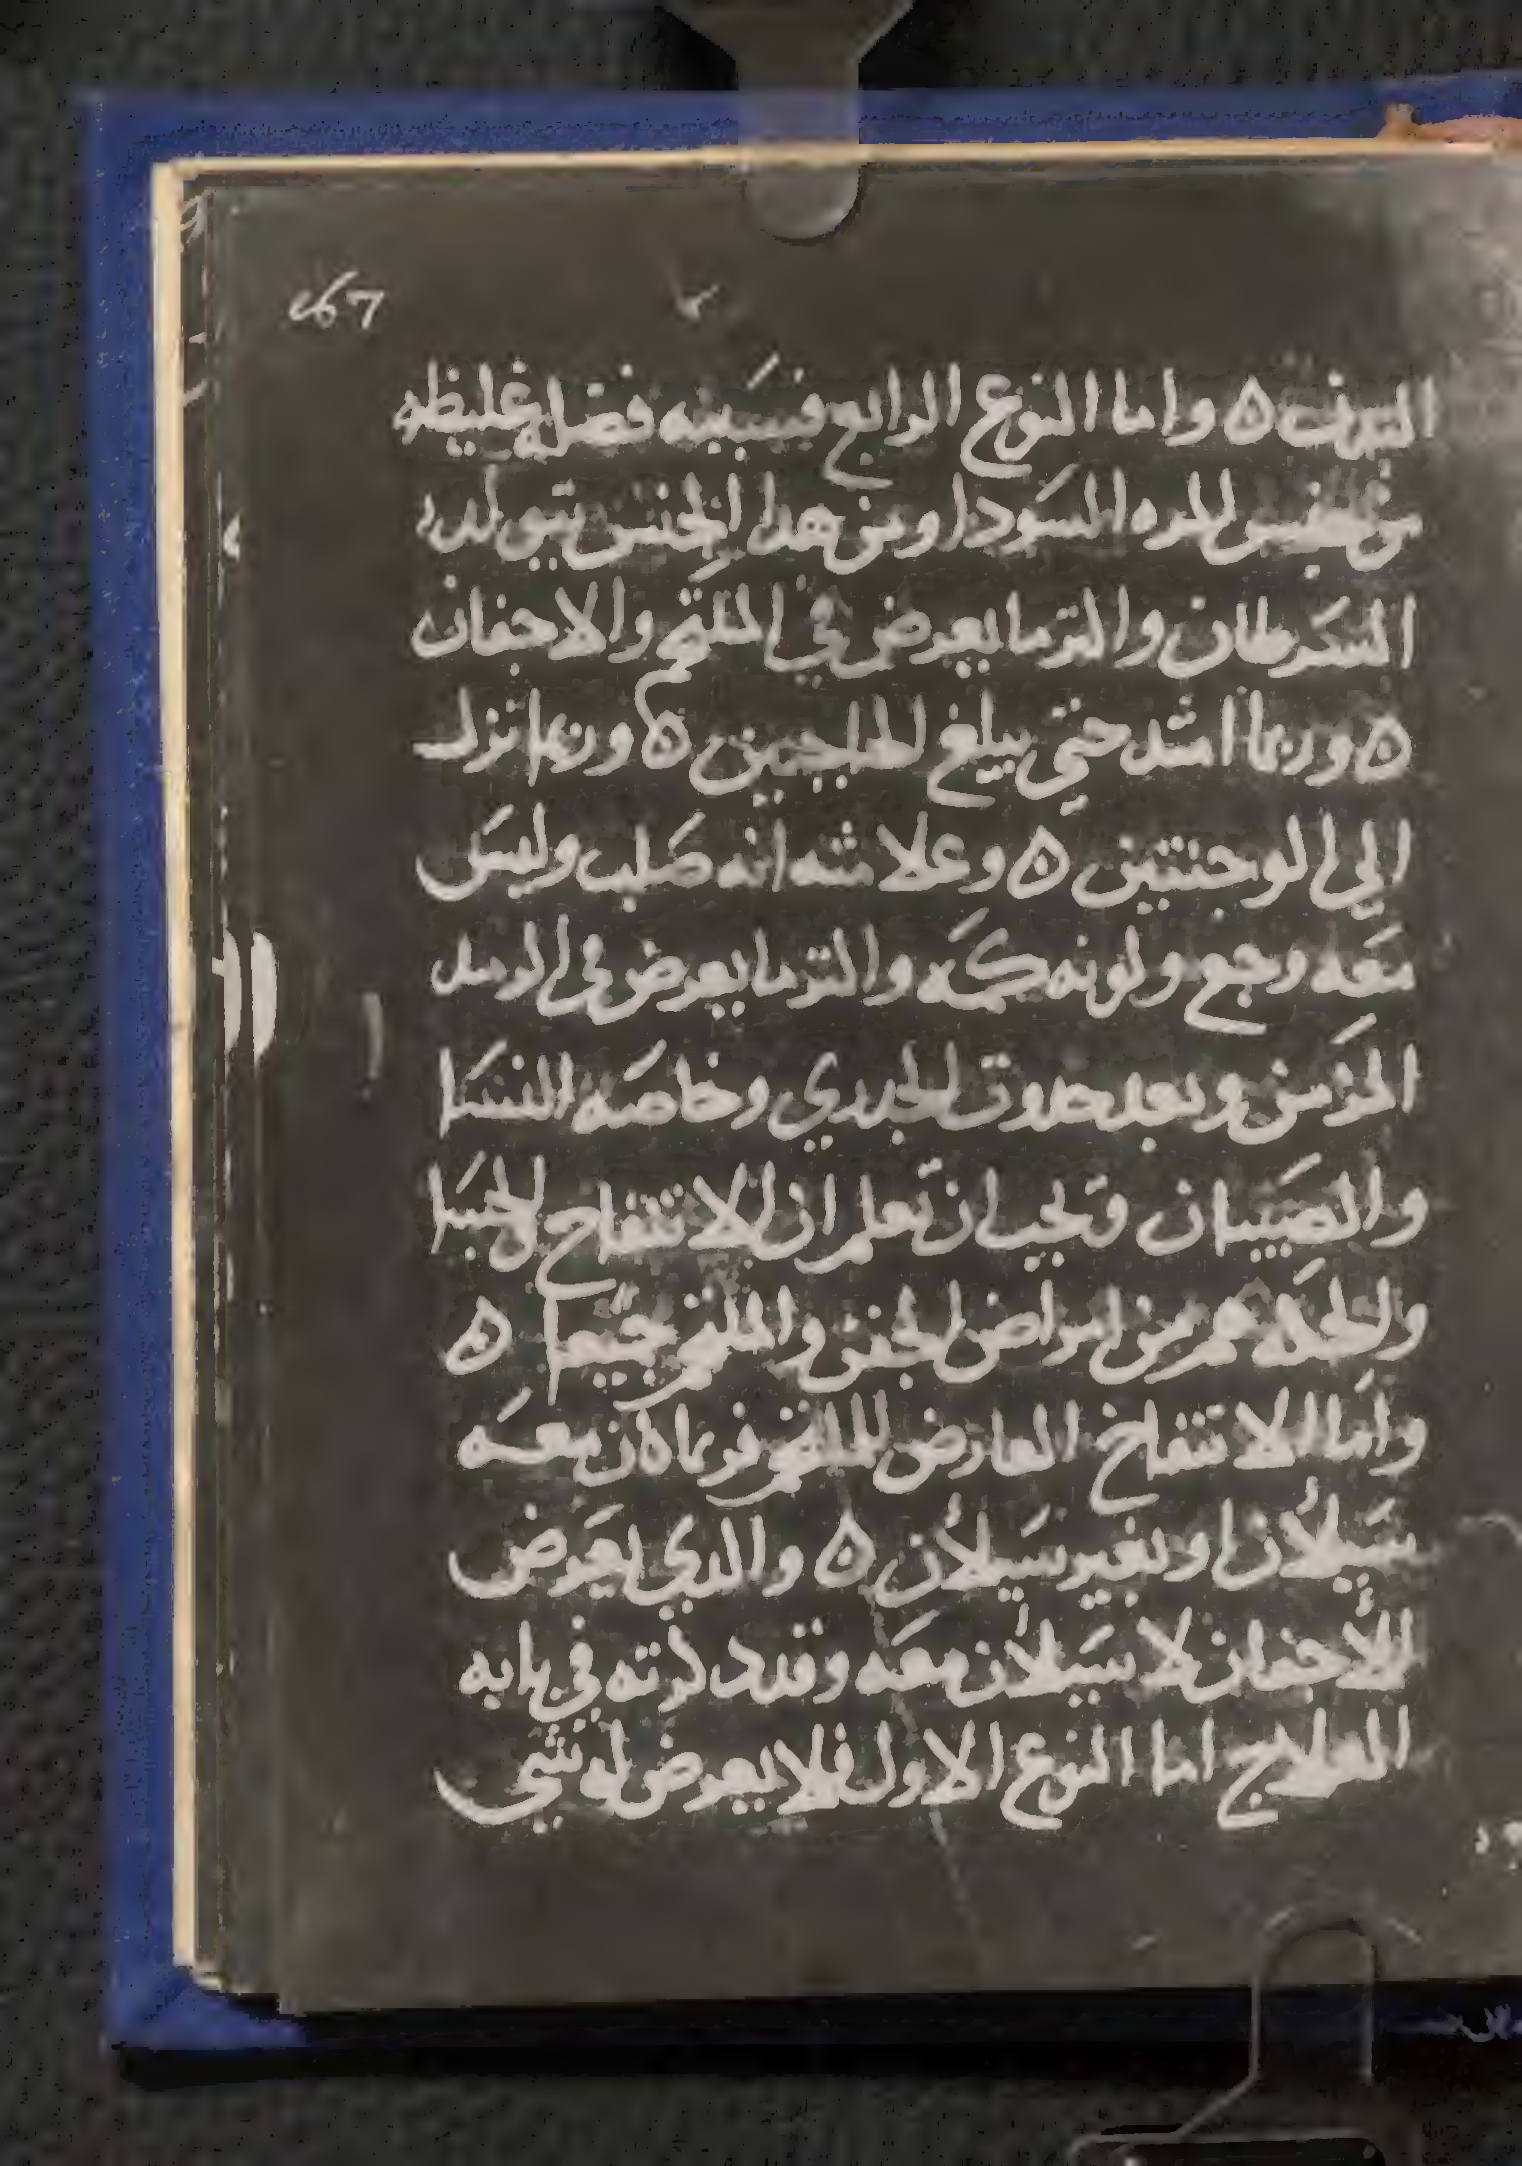 267
البدن ه واما النوع الرابع فسببه فضله غليظه
من جنس المره السودا ومن هدا الجنس يتولد
السرطان والترما يعرض في الملتحم والاجفان
ه وربما امتد حتي يبلغ الحاجبين ه وربما نزل
الي الوجنتين ه وعلامته انه صلب وليس
معه وجع ولونه كمه واكثر ما يعرض في الرمد
المزمن وبعد حدوت الجدري وخاصه النسا
والصبيان ويجب ان تعلم ان الانتفاخ والجسا
والحكه هم من امراض الجفن والملتحم جميعا ه
واما الانتفاخ العارض للملتحم فربما كان معه
سيلان او بغير سيلان ه والدي يعرض
للاجفان لا سيلان معه وقد دكرته في بابه
العلاج اما النوع الاول فلا يعرض له بشي